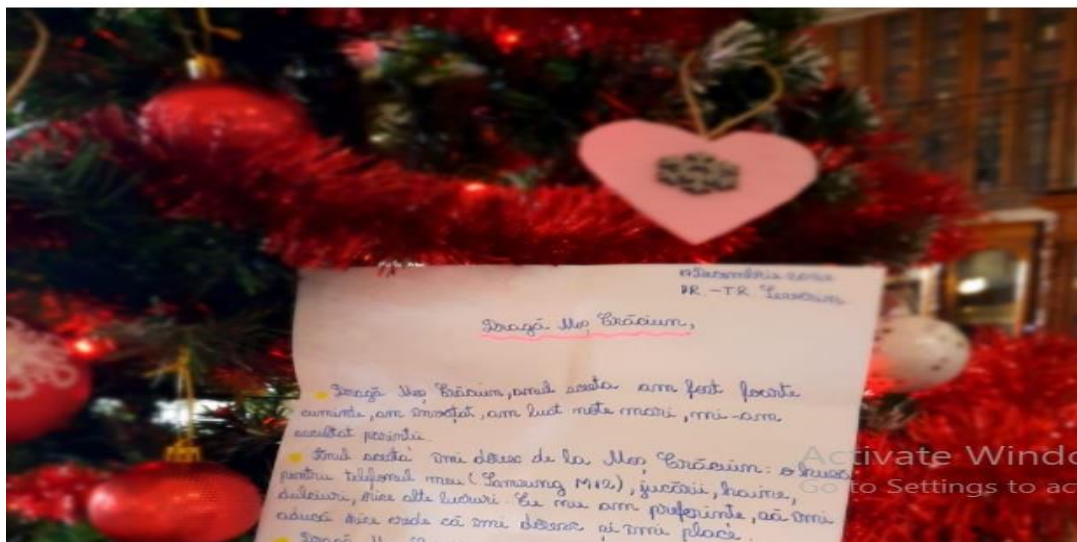 Decembrie
DR. - TR. Severin
Dragă Moș Crăciun,
Dragă Moș Crăciun, anul acesta am fost foarte
cuminte, am învățat, am luat note mari, mi-am
ascultat părinții.
Anul acesta îmi doresc de la Moș Crăciun: o husă
pentru telefonul meu (Samsung M12), jucării, haine,
dulciuri, orice alte lucruri. Eu nu am preferințe, să îmi
aducă orice crede că îmi doresc și îmi place.
Dragă Moș
Activate Windo
Go to Settings to ac